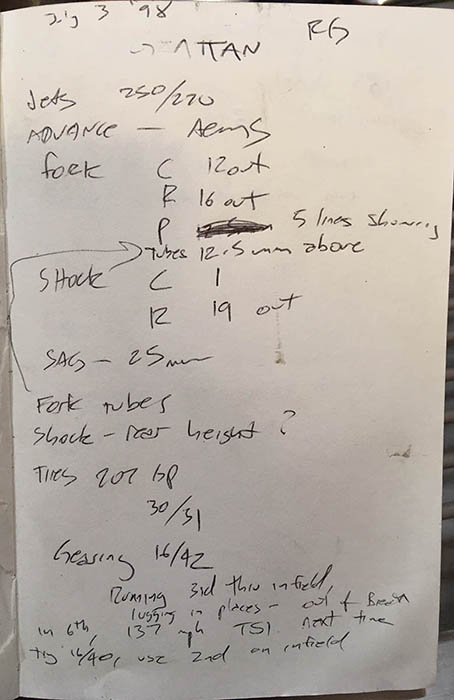 3 '98
RG
ATTAN
Jets 250/270
ADVANCE — Aems
fork C 12 out
R 16 out
P 5 lines showing
Tubes 12.5 mm above
SHock C 1
R 19 out
SAG — 25 mm
Fork tubes
Shock - rear height ?
Tires 207 GP
30/31
Gearing 16/42
Running 3rd thru infield,
lugging in places - out of
in 6th, 137 mph TSI. next time
try 16/40, use 2nd on infield